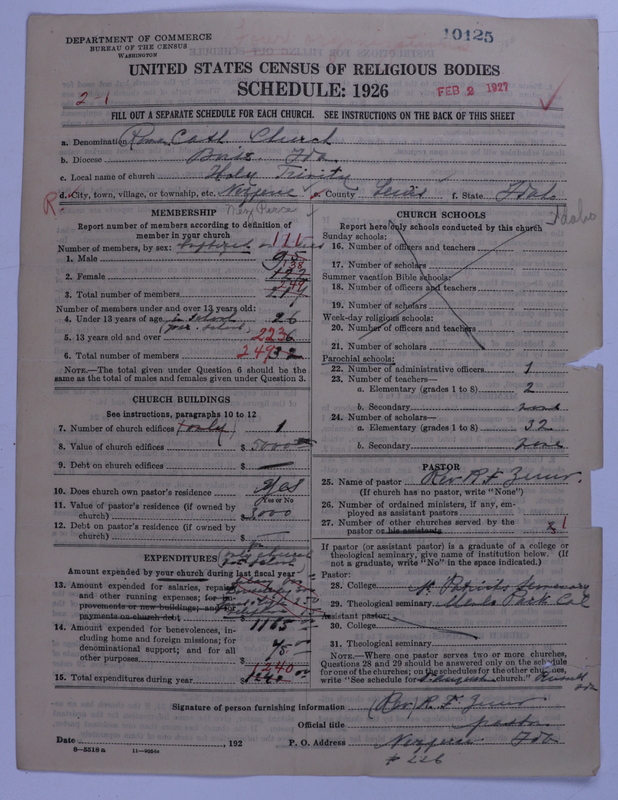 10125
DEPARTMENT OF COMMERCE
BUREAU OF THE CENSUS
WASHINGTON
UNITED STATES CENSUS OF RELIGIOUS BODIES
SCHEDULE: 1926
FEB 2 1927
2-1
FILL OUT A SEPARATE SCHEDULE FOR EACH CHURCH. SEE INSTRUCTIONS ON THE BACK OF THIS SHEET
a. Denomination Roman Cath Church
b. Diocese Boise. Ida
c. Local name of church Holy Trinity
d. City, town, village, or township, etc. Nezperce e. County Lewis f. State Idaho
Nez Perce
Idaho
MEMBERSHIP
Report number of members according to definition of
member in your church
Number of members, by sex:
1. Male 111
2. Female 138
3. Total number of members 249
Number of members under and over 13 years old:
4. Under 13 years of age in school 26
5. 13 years old and over 223
6. Total number of members 249
NOTE.—The total given under Question 6 should be the
same as the total of males and females given under Question 3.
CHURCH BUILDINGS
See instructions, paragraphs 10 to 12
7. Number of church edifices (only) 1
8. Value of church edifices $ 5000
9. Debt on church edifices $ —
10. Does church own pastor's residence Yes
Yes or No
11. Value of pastor's residence (if owned by
church) $ 3000
12. Debt on pastor's residence (if owned by
church) $ —
EXPENDITURES only church
Amount expended by your church during last fiscal year
13. Amount expended for salaries, repairs
and other running expenses; for im-
provements or new buildings; and for
payments on church debt $ 1165
14. Amount expended for benevolences, in-
cluding home and foreign missions; for
denominational support; and for all
other purposes $ 75
15. Total expenditures during year $ 1240
CHURCH SCHOOLS
Report here only schools conducted by this church
Sunday schools:
16. Number of officers and teachers
17. Number of scholars
Summer vacation Bible schools:
18. Number of officers and teachers
19. Number of scholars
Week-day religious schools:
20. Number of officers and teachers
21. Number of scholars
Parochial schools:
22. Number of administrative officers 1
23. Number of teachers—
a. Elementary (grades 1 to 8) 2
b. Secondary none
24. Number of scholars—
a. Elementary (grades 1 to 8) 32
b. Secondary none
PASTOR
25. Name of pastor Rev. R. F.
(If church has no pastor, write "None")
26. Number of ordained ministers, if any, em-
ployed as assistant pastors
27. Number of other churches served by the
pastor or his assistants 1
If pastor (or assistant pastor) is a graduate of a college or
theological seminary, give name of institution below. (If
not a graduate, write "No" in the space indicated.)
Pastor:
28. College St Patrick's Seminary
29. Theological seminary Menlo Park Cal
Assistant pastor:
30. College
31. Theological seminary
NOTE.—Where one pastor serves two or more churches,
Questions 28 and 29 should be answered only on the schedule
for one of the churches; on the schedules for the other churches,
write "See schedule for church."
Signature of person furnishing information (Rev) R. F.
Official title pastor
Date , 192 P. O. Address Nezperce Ida
# 226
8—5518 a 11—9554